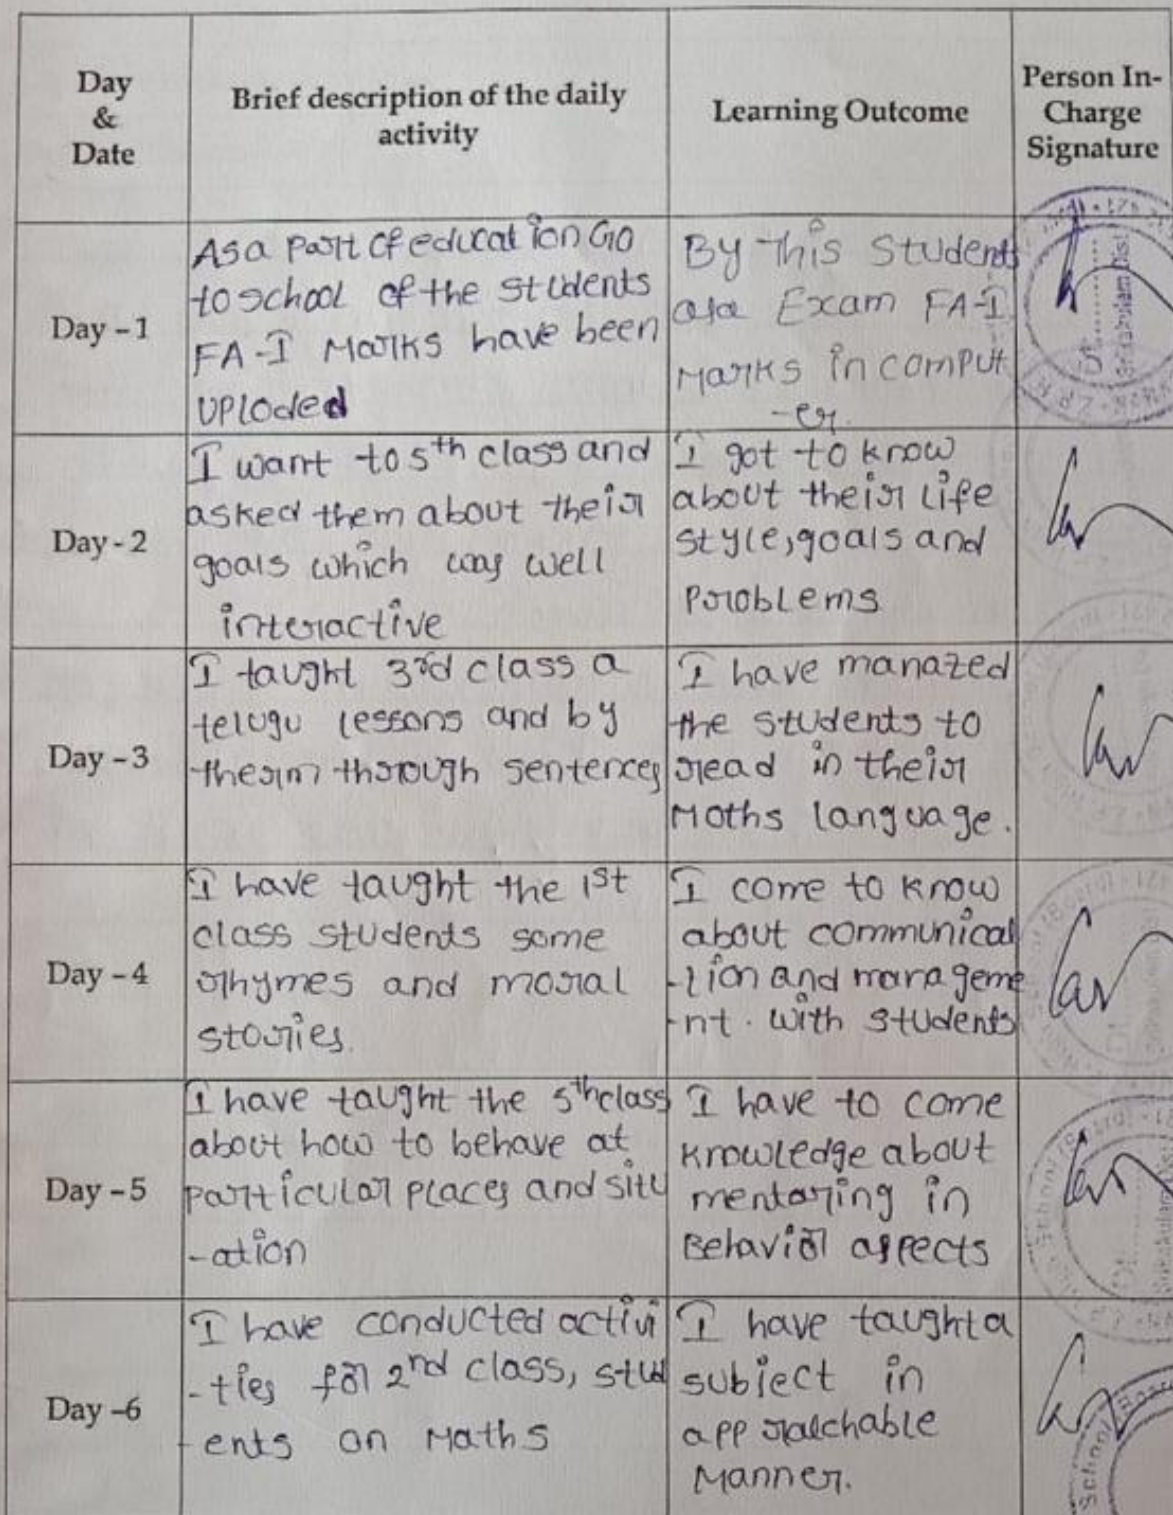 Day
&
Date
Brief description of the daily
activity
Learning Outcome
Person In-
Charge
Signature
Day - 1
As a part of education Go
to school of the students
FA-I Marks have been
uploded
By This Students
Exam FA-I
Marks in comput
-er.
Day - 2
I want to 5th class and
asked them about their
goals which way well
interactive
I got to know
about their life
style, goals and
Problems
Day - 3
I taught 3rd class a
telugu lessons and by
through sentences
I have manazed
the students to
read in their
Moths language.
Day - 4
I have taught the 1st
class students some
rhymes and moral
stories.
I come to know
about communicat
-tion and manageme
-nt. with students
Day - 5
I have taught the 5th class
about how to behave at
particular places and situ
-ation
I have to come
knowledge about
mentoring in
Behavior aspects
Day -6
I have conducted activi
-ties for 2nd class, stud
-ents on Maths
I have taught a
subject in
app rachable
Manner.